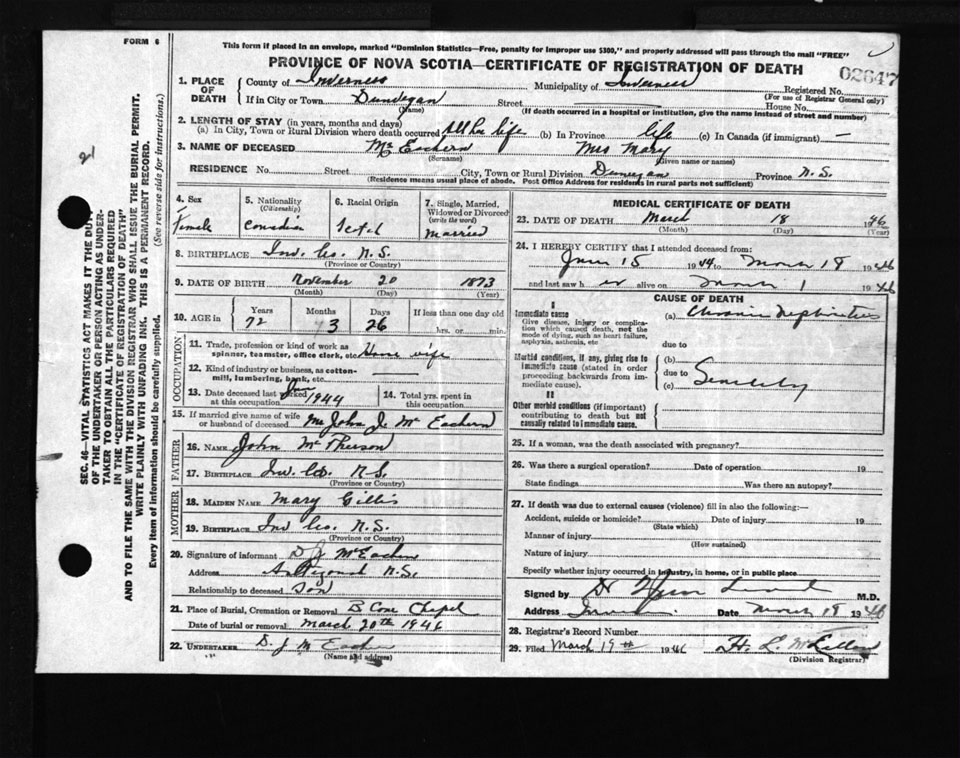 FORM 6
This form if placed in an envelope, marked "Dominion Statistics—Free, penalty for improper use $300," and properly addressed will pass through the mail "FREE"
PROVINCE OF NOVA SCOTIA—CERTIFICATE OF REGISTRATION OF DEATH
02647
1. PLACE OF DEATH
County of Inverness Municipality of Inverness Registered No.
(For use of Registrar General only)
If in City or Town Dunvegan Street House No.
(Name) (If death occurred in a hospital or institution, give the name instead of street and number)
2. LENGTH OF STAY (in years, months and days)
(a) In City, Town or Rural Division where death occurred All her life (b) In Province life (c) In Canada (if immigrant) —
3. NAME OF DECEASED Mc Eachern Mrs Mary
(Surname) (Given name or names)
RESIDENCE No. Street City, Town or Rural Division Dunvegan Province N.S.
(Residence means usual place of abode. Post Office Address for residents in rural parts not sufficient)
4. Sex Female
5. Nationality (Citizenship) Canadian
6. Racial Origin Scotch
7. Single, Married, Widowed or Divorced (write the word) Married
8. BIRTHPLACE Inv. Co. N.S.
(Province or Country)
9. DATE OF BIRTH November 20 1873
(Month) (Day) (Year)
10. AGE in Years Months Days If less than one day old
72 3 26 hrs. or min.
OCCUPATION
11. Trade, profession or kind of work as spinner, teamster, office clerk, etc. House wife
12. Kind of industry or business, as cotton-mill, lumbering, bank, etc.
13. Date deceased last worked at this occupation 1944
14. Total yrs. spent in this occupation
15. If married give name of wife or husband of deceased Mr John J. Mc Eachern
FATHER
16. Name John Mc Pherson
17. Birthplace Inv. Co. N.S.
(Province or Country)
MOTHER
18. Maiden Name Mary Gillis
19. Birthplace Inv Co. N.S.
(Province or Country)
20. Signature of informant D J McEachern
Address Antigonish N.S.
Relationship to deceased Son
21. Place of Burial, Cremation or Removal B Cove Chapel
Date of burial or removal March 20th 1946
22. UNDERTAKER D. J Mc Eachern
(Name and address)
MEDICAL CERTIFICATE OF DEATH
23. DATE OF DEATH March 18 1946
(Month) (Day) (Year)
24. I HEREBY CERTIFY that I attended deceased from:
June 15 1944 to March 18 1946
and last saw h er alive on March 1 1946
CAUSE OF DEATH
I
Immediate cause
Give disease, injury or complication which caused death, not the mode of dying, such as heart failure, asphyxia, asthenia, etc
(a) Chronic Nephritis
due to
Morbid conditions, if any, giving rise to immediate cause (stated in order proceeding backwards from immediate cause).
(b)
due to
(c) Senility
II
Other morbid conditions (if important) contributing to death but not causally related to immediate cause.
25. If a woman, was the death associated with pregnancy?
26. Was there a surgical operation? Date of operation 19
State findings Was there an autopsy?
27. If death was due to external causes (violence) fill in also the following:—
Accident, suicide or homicide? Date of injury 19
(State which)
Manner of injury
(How sustained)
Nature of injury
Specify whether injury occurred in industry, in home, or in public place
Signed by Dr M.D.
Address Date March 18 1946
28. Registrar's Record Number
29. Filed March 19th 1946 H. L. McLellan
(Division Registrar)
SEC. 46—VITAL STATISTICS ACT MAKES IT THE DUTY
OF THE UNDERTAKER OR PERSON ACTING AS UNDER-
TAKER TO OBTAIN ALL THE PARTICULARS REQUIRED
IN THE "CERTIFICATE OF REGISTRATION OF DEATH"
AND TO FILE THE SAME WITH THE DIVISION REGISTRAR WHO SHALL ISSUE THE BURIAL PERMIT.
WRITE PLAINLY WITH UNFADING INK. THIS IS A PERMANENT RECORD.
Every item of information should be carefully supplied. (See reverse side for instructions.)